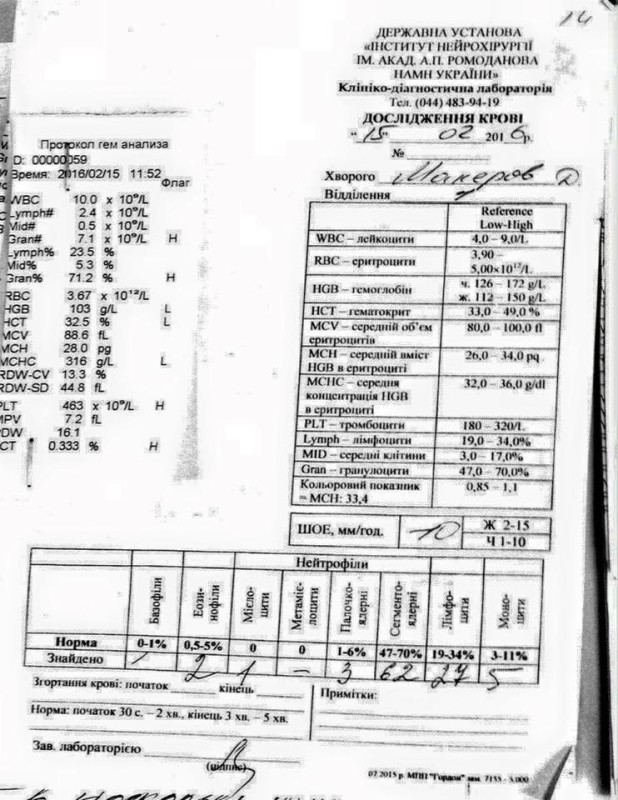 14
ДЕРЖАВНА УСТАНОВА
«ІНСТИТУТ НЕЙРОХІРУРГІЇ
ІМ. АКАД. А.П. РОМОДАНОВА
НАМН УКРАЇНИ»
Клініко-діагностична лабораторія
Тел. (044) 483-94-19
ДОСЛІДЖЕННЯ КРОВІ
"15" 02 2016р.
№
Хворого Макеров Д.
Відділення
Протокол гем анализа
ID: 00000059
Время: 2016/02/15 11:52
Флаг
WBC 10.0 x 10⁹/L
Lymph# 2.4 x 10⁹/L
Mid# 0.5 x 10⁹/L
Gran# 7.1 x 10⁹/L H
Lymph% 23.5 %
Mid% 5.3 %
Gran% 71.2 % H
RBC 3.67 x 10¹²/L
HGB 103 g/L L
HCT 32.5 % L
MCV 88.6 fL
MCH 28.0 pg
MCHC 316 g/L L
RDW-CV 13.3 %
RDW-SD 44.8 fL
PLT 463 x 10⁹/L H
MPV 7.2 fL
PDW 16.1
PCT 0.333 % H
Reference
Low-High
WBC – лейкоцити 4,0 – 9,0/L
RBC – еритроцити 3,90 – 5,00×10¹²/L
HGB – гемоглобін ч. 126 – 172 g/L ж. 112 – 150 g/L
HCT – гематокрит 33,0 – 49,0 %
MCV – середній об'єм еритроцитів 80,0 – 100,0 fl
MCH – середній вміст HGB в еритроциті 26,0 – 34,0 pq
MCHC – середня концентрація HGB в еритроциті 32,0 – 36,0 g/dl
PLT – тромбоцити 180 – 320/L
Lymph – лімфоцити 19,0 – 34,0%
MID – середні клітини 3,0 – 17,0%
Gran – гранулоцити 47,0 – 70,0%
Кольоровий показник = MCH: 33,4 0,85 – 1,1
ШОЕ, мм/год. 10 Ж 2-15
Ч 1-10
Нейтрофіли
Базофіли Еози-нофіли Мієло-цити Метаміє-лоцити Палочко-ядерні Сегменто-ядерні Лімфо-цити Моно-цити
Норма 0-1% 0,5-5% 0 0 1-6% 47-70% 19-34% 3-11%
Знайдено 2 1 – 3 62 27 5
Згортання крові: початок кінець
Примітки:
Норма: початок 30 с. – 2 хв., кінець 3 хв. – 5 хв.
Зав. лабораторією
(підпис)
07.2015 р. МПП "Гордон" зам. 7155 - 5.000